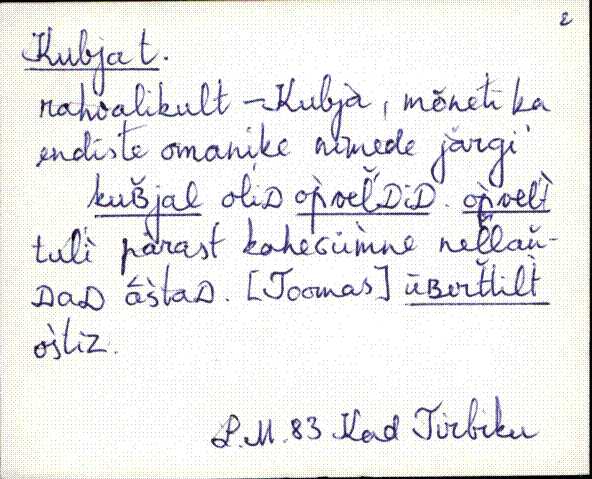 2
Kubja t.
rahvalikult – Kubjà, mõneti ka
endiste omanike nimede järgi
kuB̆jal oliD opvel̆'DiD. opvelt̀
tuli pàrast kahecümne nellän̆-
DaD ââstaD. [Toomas]
ostiz.
L.M. 83 Kad Tirbiku